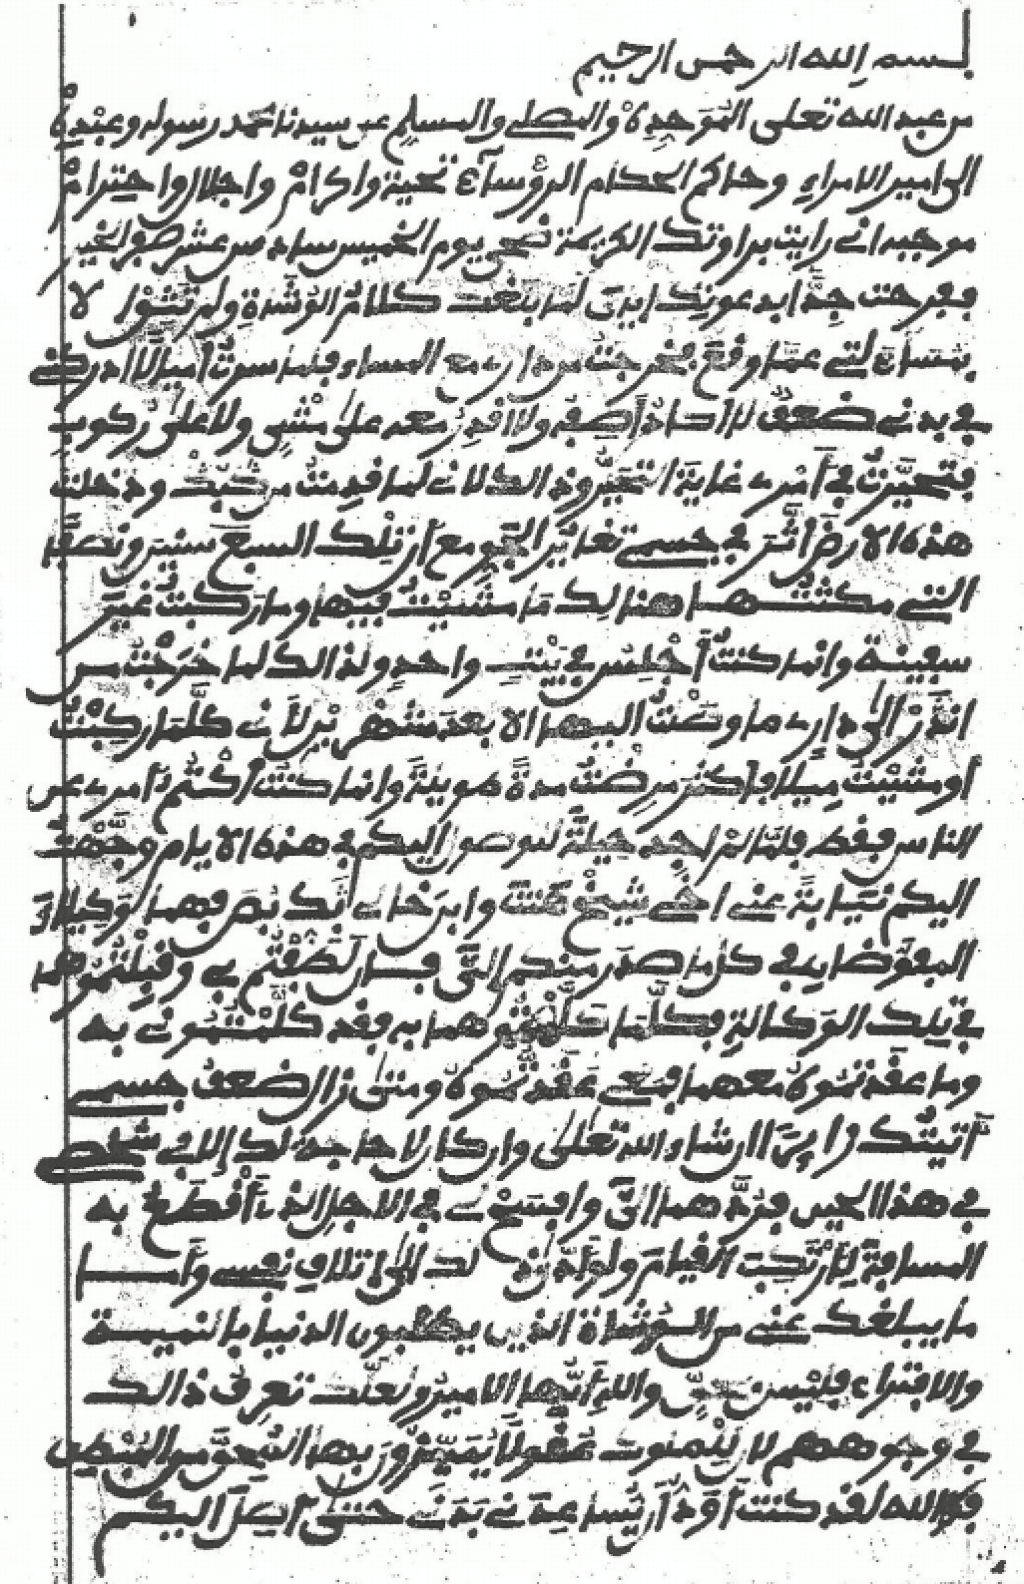 بسم الله الرحمن الرحيم
من عبد الله تعلى الموحده والمصلي والمسلم على سيدنا محمد رسوله وعبده
الى امير الامراء وحاكم الحكام الرؤساء تحية واكرام واجلال واحترام
موجبه اني رايت براوتك الكريمة ضحى يوم الخميس سادس عشر صفر الخير
ففرحت جدا ابدعونك إياي لما بلغك كلام الوشاة ولم
عما وقع فخرجت من داري مع المساء فلما سرت أميالا ادركني
في بدني ضعف لا اكاد أصفه ولا اقدر معه على مشي ولا على ركوب
فتحيرت في أمري غاية التحير وذالك لاني لما قدمت من ودخلت
هذه الارض أثر في جسمي تغاير الجو مع أن تلك السبع سنين ونصف
التي مكثتها هنالك ما مشيت فيها وما ركبت غير
سفينة وانما كنت أجلس في بيت واحد ولذالك لما خرجت من
اندر إلى داري ما وصلت اليها الا بعد شهرين لأني كلما ركبت
أو مشيت ميلا فأكثر مرضت مدة طويلة وانما كنت أكتم أمري عن
الناس فقط فلما لم اجد حيلة للوصول اليكم في هذه الايام وجهت
اليكم نيابة عني اخي شيخ وابن خالي فهما الوكيلان
المفوضان في كل ما صدر منكم إلي فان لطفتم بي وقبلتموهما
في تلك الوكالة فكلما كلمتموهما به فقد كلمتموني به
وما عقدتموه معهما فمعي عقدتموه ومتى زال ضعف جسمي
أتيتك زايرا ان شاء الله تعالى وان كان لا حاجة لك إلا في شخصي
في هذا الحين فردهما إلي وافسح لي في الاجل الذي أقطع به
المسافة لأرتكب القيام ولو أدى ذالك إلى اتلاف نفسي وأما
ما يبلغك عني من الوشاة الذين يطلبون الدنيا بالنميمة
والافتراء فليس والله أيها الامير ولعلك تعرف ذالك
في وجوههم لان للملوك عقولا يميزون بها المحق من المبطل
فوالله لقد كنت أود أن يساعدني بدني حتى أصل اليكم